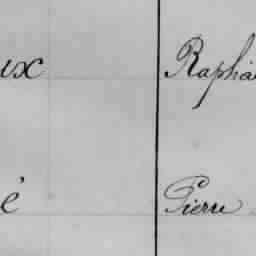 ux Raphaë
é Pierre